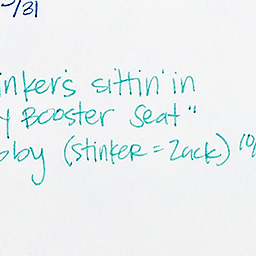 /31
inker's sittin' in
y Booster Seat"
bby (stinker = Zack) 10/